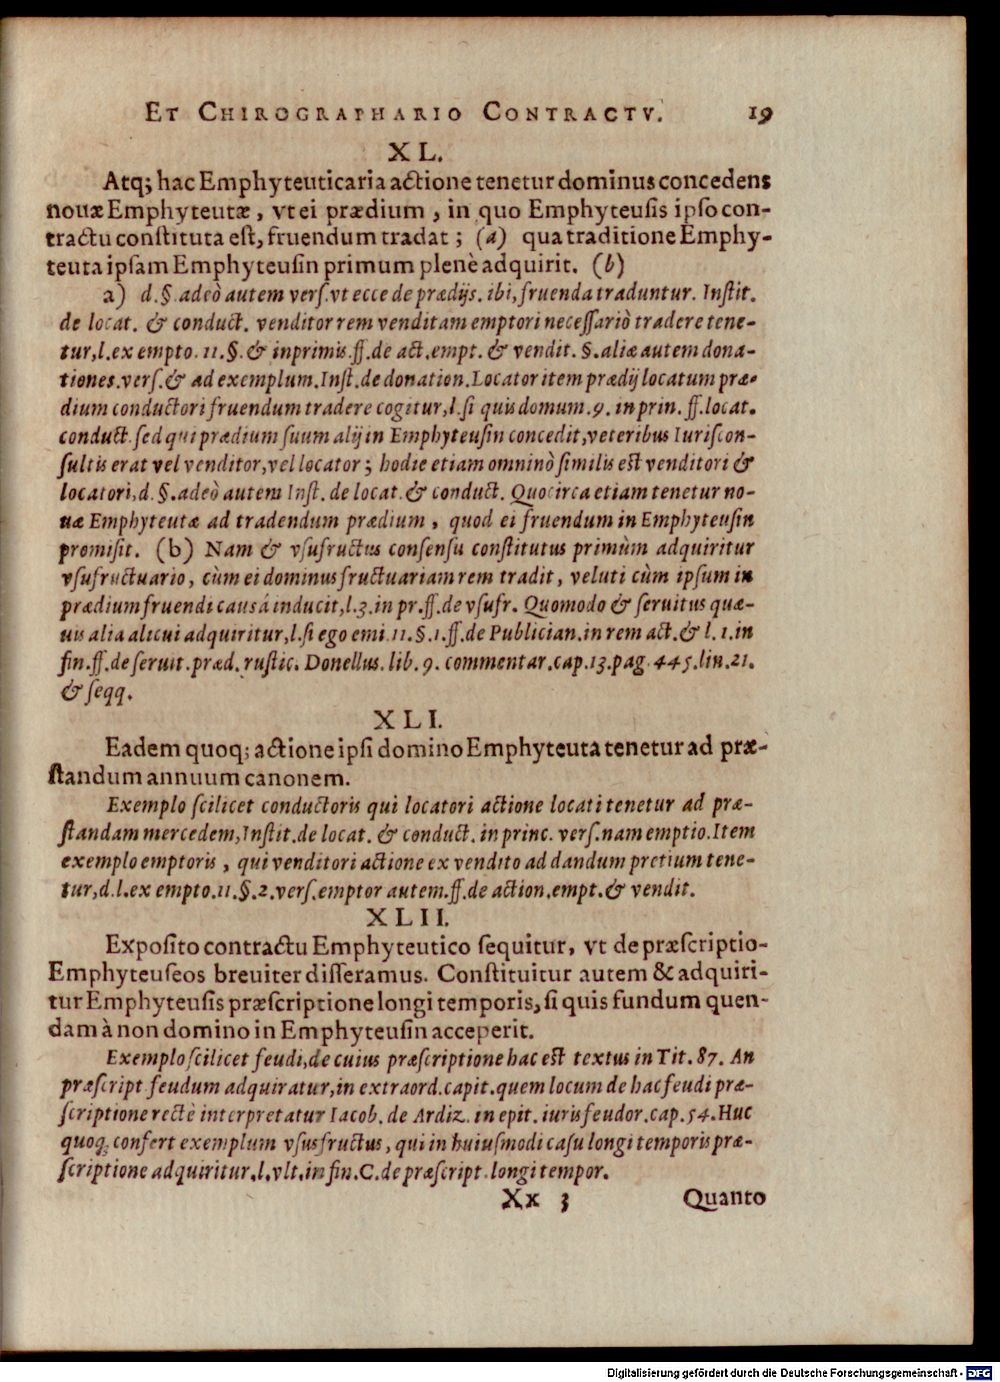 ET CHIROGRAPHARIO CONTRACTV. 19
XL.
Atq; hac Emphyteuticaria actione tenetur dominus concedens
nouæ Emphyteutæ, vt ei prædium, in quo Emphyteusis ipso con-
tractu constituta est, fruendum tradat; (a) qua traditione Emphy-
teuta ipsam Emphyteusin primum plenè adquirit. (b)
a) d. §. adeò autem vers. vt ecce de prædijs. ibi, fruenda traduntur. Instit.
de locat. & conduct. venditor rem venditam emptori necessariò tradere tene-
tur, l. ex empto. 11. §. & inprimis. ff. de act. empt. & vendit. §. aliæ autem dona-
tiones. vers. & ad exemplum. Inst. de donation. Locator item prædij locatum præ-
dium conductori fruendum tradere cogitur, l. si quis domum. 9. in prin. ff. locat.
conduct. sed qui prædium suum alij in Emphyteusin concedit, veteribus Iuriscon-
sultis erat vel venditor, vel locator; hodie etiam omninò similis est venditori &
locatori, d. §. adeò autem Inst. de locat. & conduct. Quocirca etiam tenetur no-
uæ Emphyteutæ ad tradendum prædium, quod ei fruendum in Emphyteusin
promisit. (b) Nam & vsufructus consensu constitutus primùm adquiritur
vsufructuario, cùm ei dominus fructuariam rem tradit, veluti cùm ipsum in
prædium fruendi causá inducit, l. 3. in pr. ff. de vsufr. Quomodo & seruitus quæ-
uis alia alicui adquiritur, l. si ego emi. 11. §. 1. ff. de Publician. in rem act. & l. 1. in
fin. ff. de seruit. præd. rustic. Donellus. lib. 9. commentar. cap. 13. pag. 445. lin. 21.
& seqq.
XLI.
Eadem quoq; actione ipsi domino Emphyteuta tenetur ad præ-
standum annuum canonem.
Exemplo scilicet conductoris qui locatori actione locati tenetur ad præ-
standam mercedem, Instit. de locat. & conduct. in princ. vers. nam emptio. Item
exemplo emptoris, qui venditori actione ex vendito ad dandum pretium tene-
tur, d. l. ex empto. 11. §. 2. vers. emptor autem. ff. de action. empt. & vendit.
XLII.
Exposito contractu Emphyteutico sequitur, vt de præscriptio-
Emphyteuseos breuiter disseramus. Constituitur autem & adquiri-
tur Emphyteusis præscriptione longi temporis, si quis fundum quen-
dam à non domino in Emphyteusin acceperit.
Exemplo scilicet feudi, de cuius præscriptione hac est textus in Tit. 87. An
præscript. feudum adquiratur, in extraord. capit. quem locum de hac feudi præ-
scriptione rectè interpretatur Iacob. de Ardiz. in epit. iuris feudor. cap. 54. Huc
quoq; confert exemplum vsusfructus, qui in huiusmodi casu longi temporis præ-
scriptione adquiritur. l. vlt. in fin. C. de præscript. longi tempor.
Xx 3 Quanto
Digitalisierung gefördert durch die Deutsche Forschungsgemeinschaft - DFG